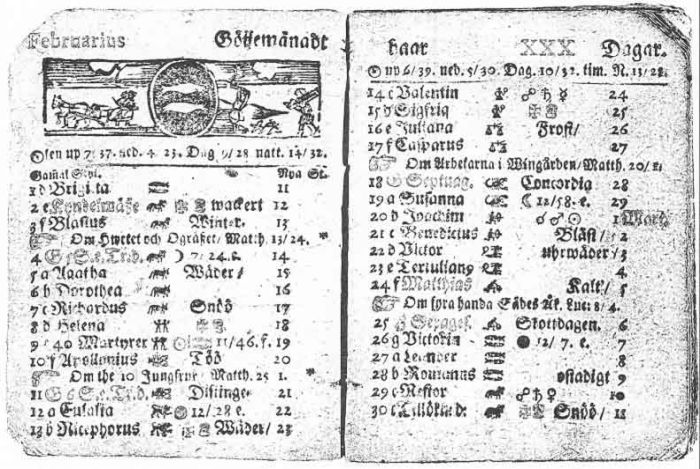 Februarius Göijemånadt
Solen up 7/37. ned. 4 23. Dag 9/28 natt. 14/32.
Gamal Styl. Nya St.
1 d Brigita 11
2 e Kyndelmässe wackert 12
3 f Blasius Winter. 13
Om Hwetet och Ogräset/ Matth. 13/24.
4 G 5 S. e. Tr. d. 7/24. e. 14
5 a Agatha Wäder/ 15
6 b Dorothea 16
7 c Richardus Snöö 17
8 d Helena 18
9 e 40 Martyrer 11/46. f. 19
10 f Apollonius Töö 20
Om the 10 Jungfrur/ Matth. 25 1.
11 G 6 S. e. Tr. d. Distinge. 21
12 a Eulalia 12/28 e 22
13 b Nicephorus Wäder/ 23
haar XXX Dagar.
up 6/39. ned. 5/30. Dag. 10/32. tim. N. 13/28.
14 c Valentin ☍ ♄ ☿ 24
15 d Sigfrid 25
16 e Juliana Frost/ 26
17 f Casparus 27
Om Arbetarna i Wingården/ Matth. 20/1.
18 G Septuag. Concordia 28
19 a Susanna ☾ 12/58. e. 29
20 b Joachim ☌ ♂ ☉ 1 Mart.
21 c Benedictus Bläst/ 2
22 d Victor uhrwäder/ 3
23 e Tertulianq 4
24 f Matthias Kalt/ 5
Om fyra handa Sädes åk. Luc: 8/4.
25 G Sexages. Skottdagen. 6
26 g Victorin ● 12/ 7. e. 7
27 a Leander 8
28 b Romanus ostadigt 9
29 c Nestor ☍ ♄ ♀ 10
30 c Tillökn d: Snöö/ 11